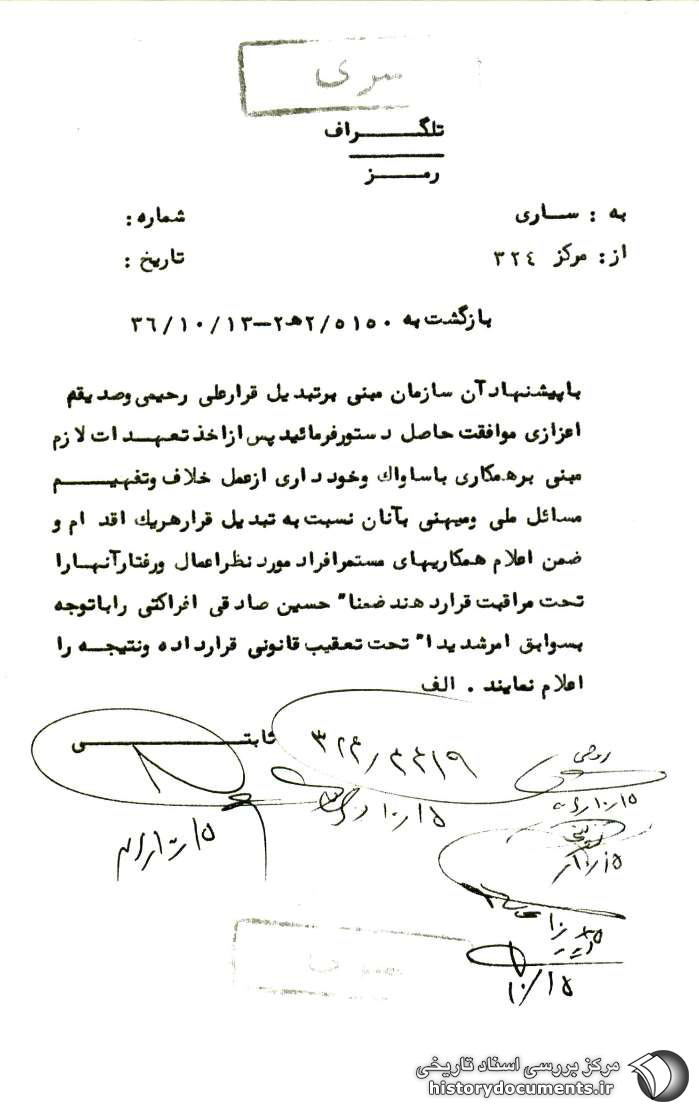 سری
تلگراف
رمز
به : ساری
شماره :
از : مرکز ۳۲۴
تاریخ :
بازگشت به ۲/۵۱۵۰ هـ۲-۳۶/۱۰/۱۳
باپیشنهاد آن سازمان مبنی برتبدیل قرارعلی رحیمی وصدیقم
اعزازی موافقت حاصل دستورفرمائید پس ازاخذ تعهدات لازم
مبنی برهمکاری باساواك وخودداری ازعمل خلاف وتفهیم
مسائل ملی ومیهنی بآنان نسبت به تبدیل قرارهریك اقدام و
ضمن اعلام همکاریهای مستمرافراد مورد نظراعمال ورفتارآنهارا
تحت مراقبت قراردهند ضمنا" حسین صادقی افراکتی راباتوجه
بسوابق امرشدیدا" تحت تعقیب قانونی قرارداده ونتیجه را
اعلام نمایند . الف
ثابتی
۱۵/۱۰
مرکز بررسی اسناد تاریخی
historydocuments.ir